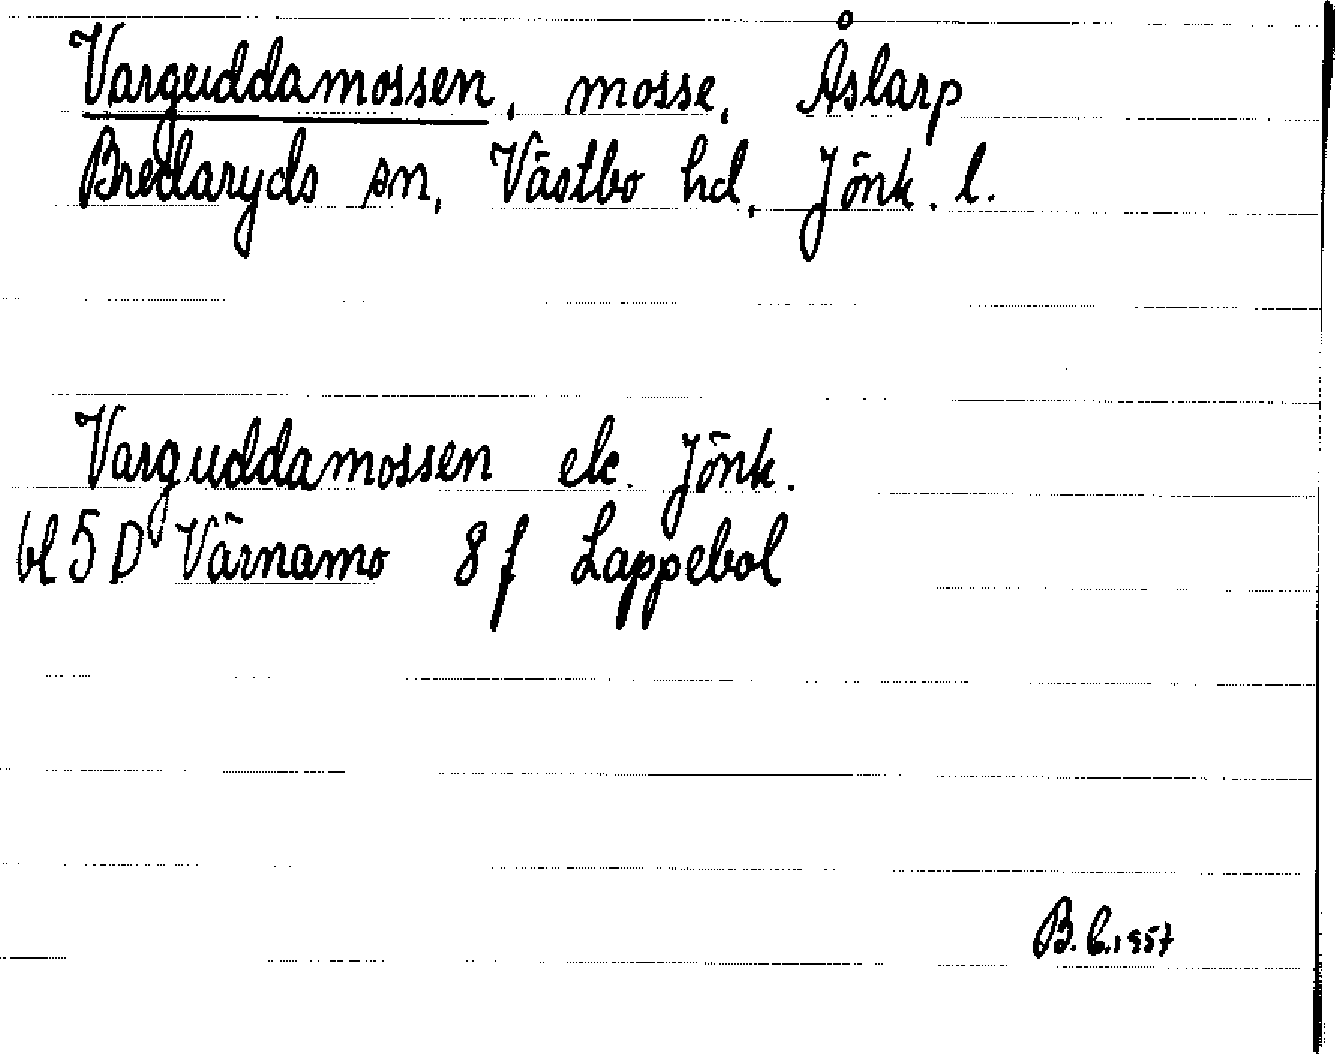 Varguddamossen, mosse, Åslarp
Bredaryds sn, Västbo hd, Jönk. l.
Varguddamossen ek. Jönk.
bl 5 D Värnamo 8 f Lappebol
B. 1957